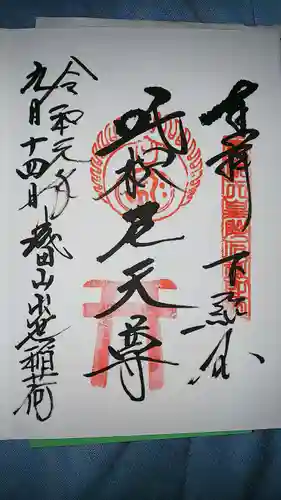 奉拝 下総
吒枳尼天尊
令和元年
九月十四日 成田山出世稲荷